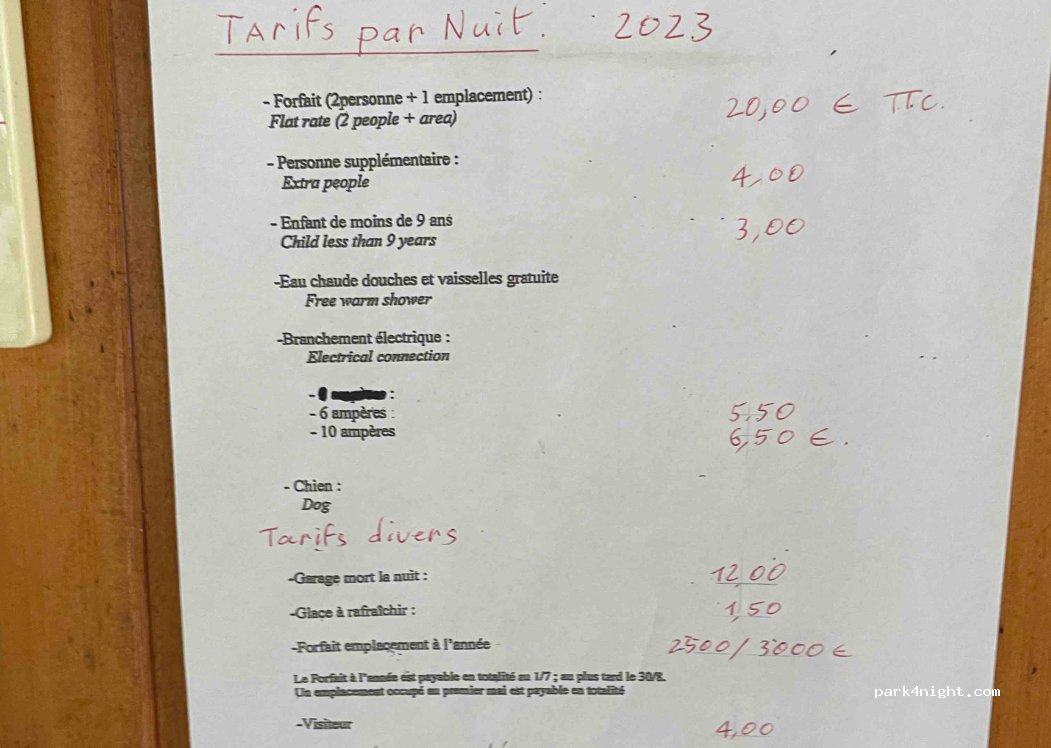 Tarifs par Nuit. 2023
- Forfait (2personne + 1 emplacement) : 20,00 € TTC.
Flat rate (2 people + area)
- Personne supplémentaire : 4,00
Extra people
- Enfant de moins de 9 ans 3,00
Child less than 9 years
-Eau chaude douches et vaisselles gratuite
Free warm shower
-Branchement électrique :
Electrical connection
- :
- 6 ampères : 5,50
- 10 ampères 6,50 €.
- Chien :
Dog
Tarifs divers
-Garage mort la nuit : 12,00
-Glace à rafraîchir : 1,50
-Forfait emplacement à l'année 2500/3000 €
Le Forfait à l'année est payable en totalité au 1/7 ; au plus tard le 30/8.
Un emplacement occupé au premier mai est payable en totalité
park4night.com
-Visiteur 4,00